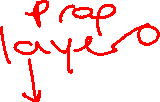 prop
layer